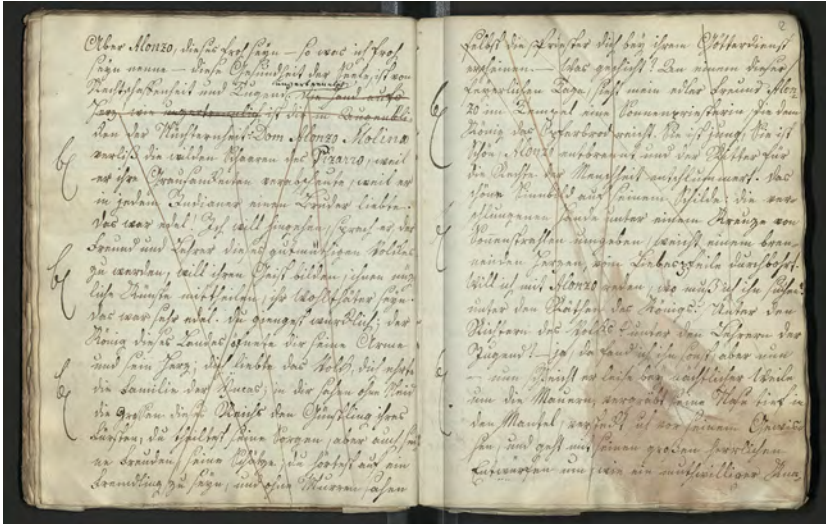 Aber Alonzo, dieses froh seyn — so was ich froh
seyn nenne — diese Gesundheit der Seele, ist von
Rechtschaffenheit und Tugend
ist die
der Nüchternheit. Dom Alonzo Molina
verließ die wilden Schaaren des Pizarro, weil
er ihre Grausamkeiten verabscheute, weil er
in jedem Indianer einen Bruder liebte.
Das war edel! Ich will hingehen, sprach er, der
Freund und Lehrer dieses gutmüthigen Volkes
zu werden, will ihren Geist bilden, ihnen nüz-
liche Künste mittheilen, ihr Wohlthäter seyn.
Das war sehr edel. Du giengst würklich; der
König dieses Landes öfnete dir seine Arme
und sein Herz; dich liebte das Volk, dich ehrte
die Familie der Incas; in dir sahen ohne Neid
die Großen dieses Reichs den Günstling ihres
Fürsten; du theiltest seine Sorgen, aber auch sei-
ne Freuden, seine Schäze; du hörtest auf ein
Fremdling zu seyn, und ohne Murren sahen
2
selbst die Priester dich bey ihrem Götterdienst
erscheinen. — Was geschieht? An einem dieser
feyerlichen Tage sieht mein edler Freund Alon-
zo im Tempel eine Sonnenpriesterin die dem
König das Opferbrod reicht. Sie ist jung, Sie ist
schön, Alonzo entbrennt und der Ritter für
die Rechte der Menschheit entschlummert. Das
schöne Sinnbild auf seinem Schilde: die ver-
schlungenen Hände unter einem Kreuze von
Sonnenstrahlen umgeben, weicht einem bren-
nenden Herzen, vom Liebespfeile durchbohrt.
Will ich mit Alonzo reden, wo muß ich ihn suchen?
unter den Räthen des Königs? Unter den
Richtern des Volks? unter den Lehrern der
Jugend? — ja, da fand ich ihn sonst, aber nun
— nun schleicht er leise bey nächtlicher Weile
um die Mauern, vergräbt seine Nase tief in
den Mantel, versteckt sich vor seinem Gewis-
sen, und geht mit seinen großen herrlichen
Entwürfen um, wie ein muthwilliger Kna-